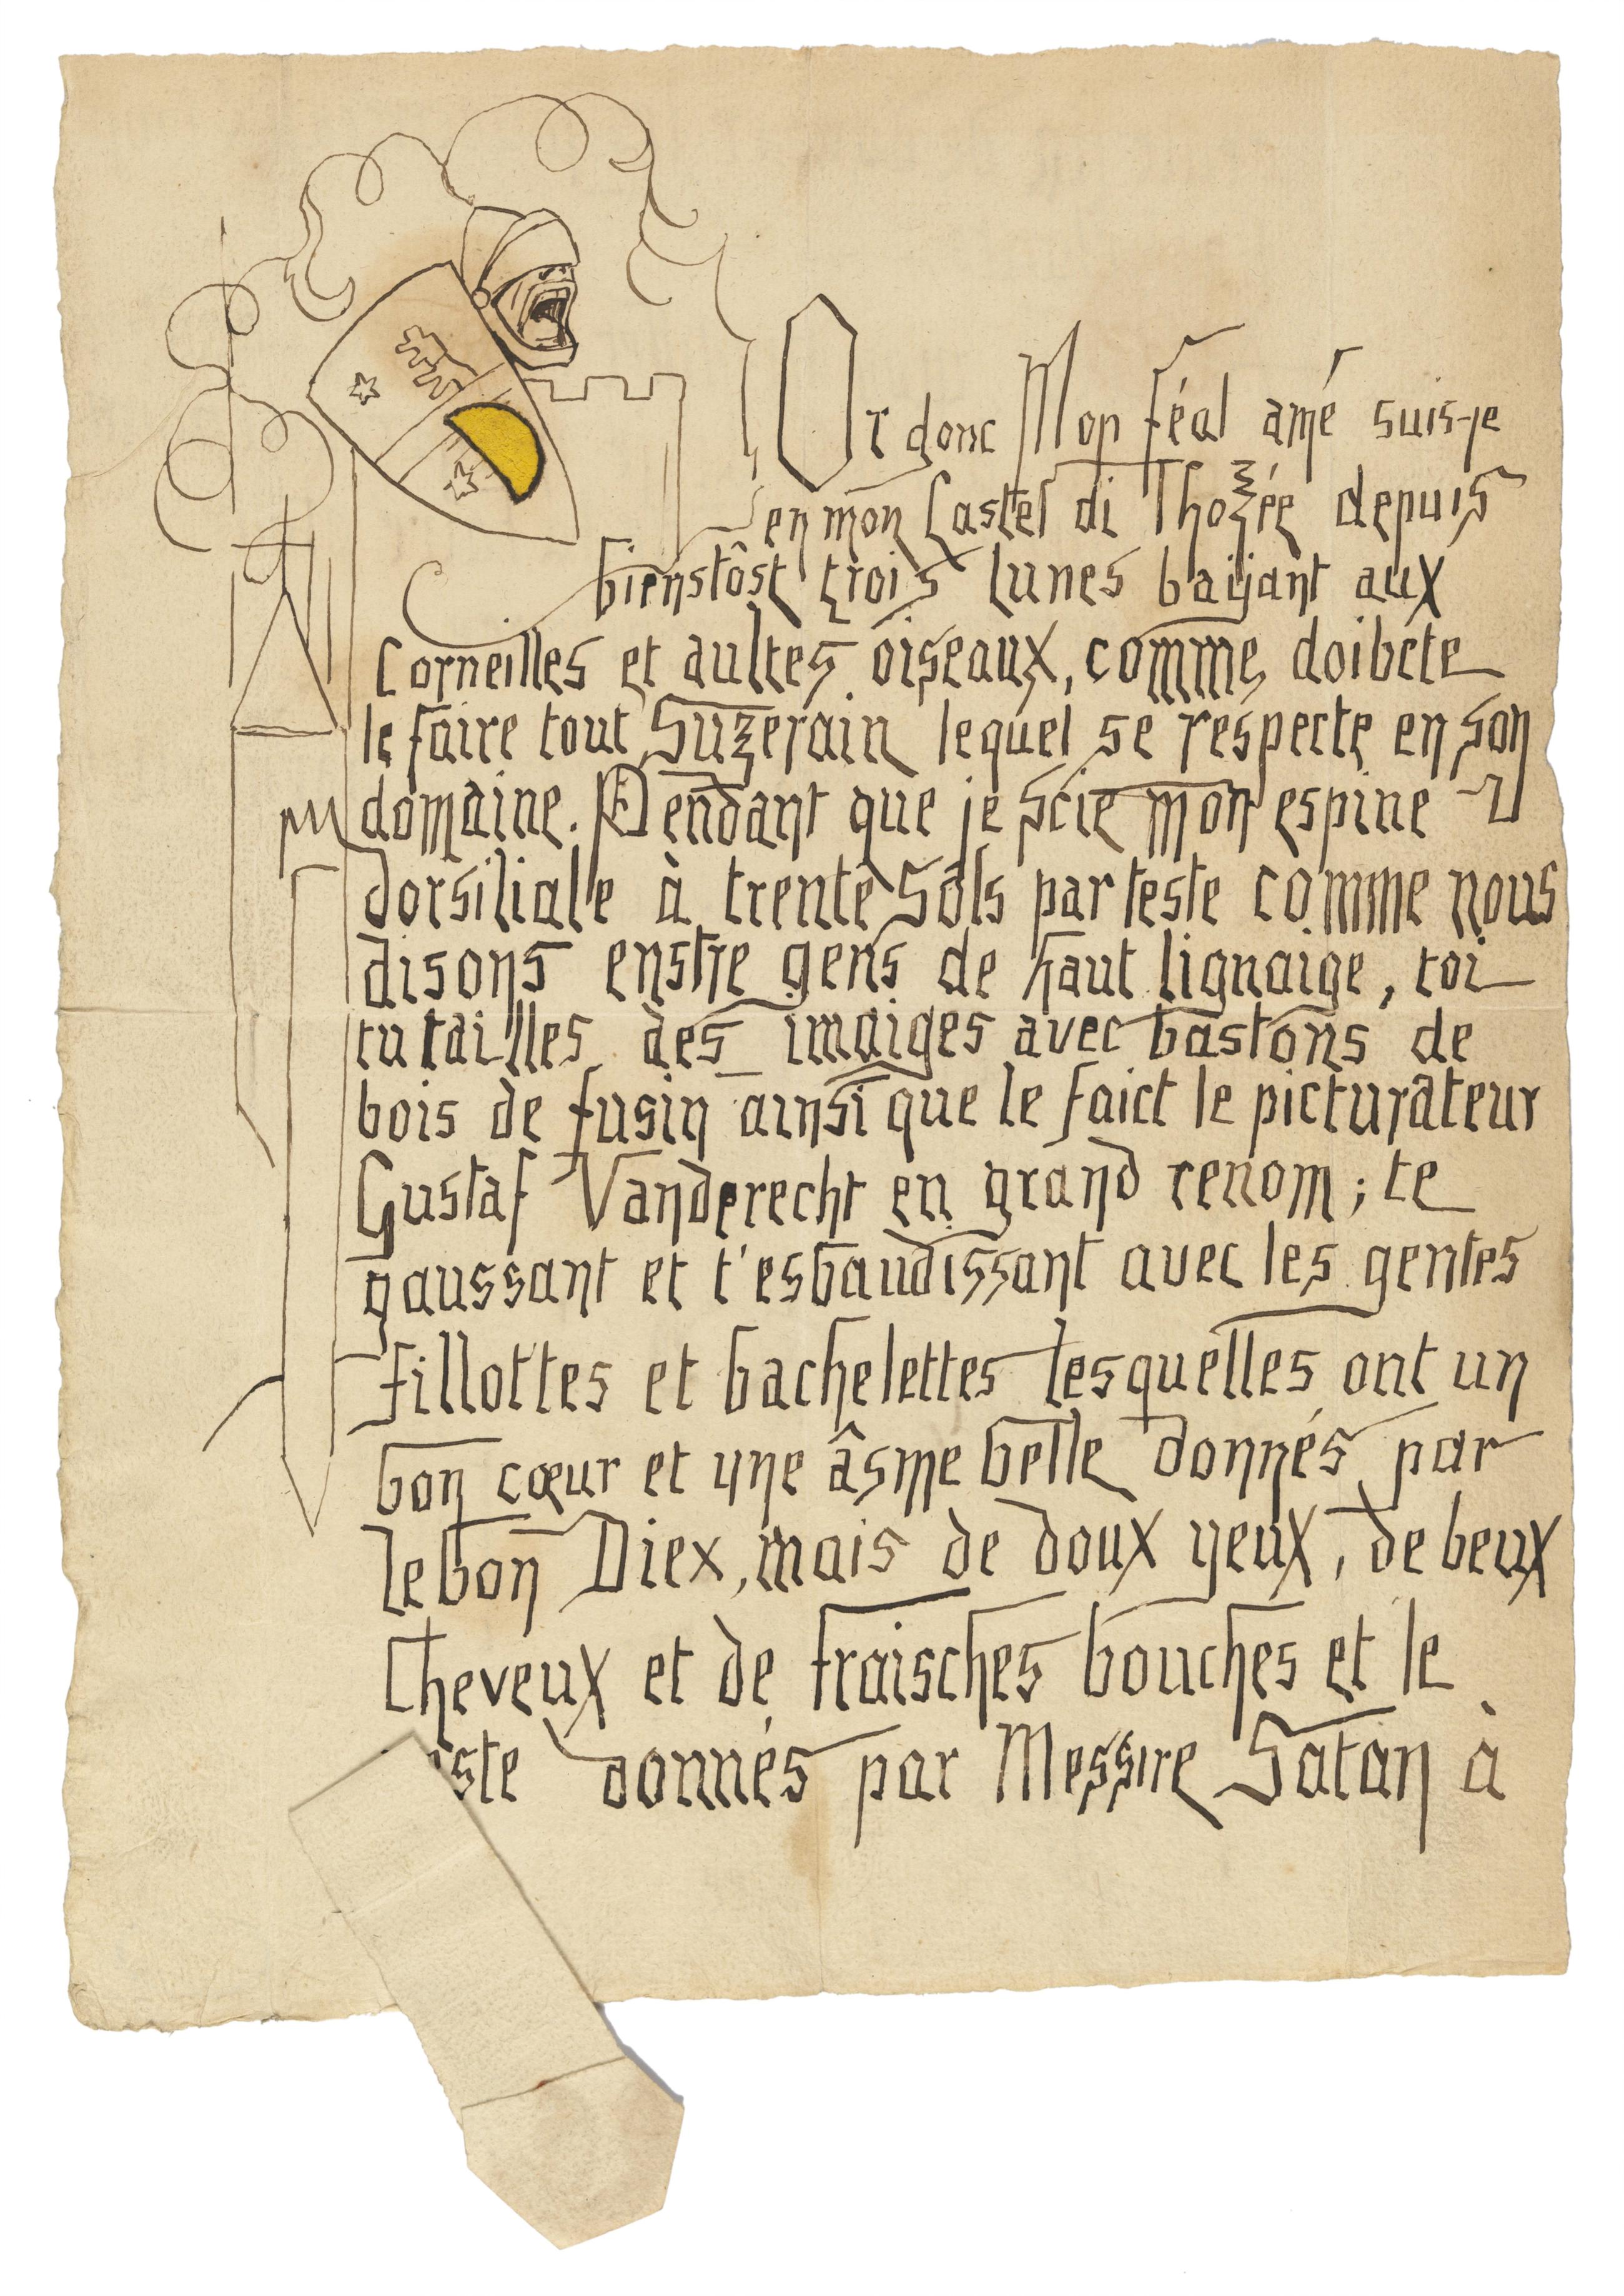 Or donc Mon féal amé suis-je
en mon Castel di Thozée depuis
bienstôst trois lunes baÿant aux
Corneilles et aultes oiseaux, comme doibcte
le faire tout Suzerain lequel se respecte en son
domaine. Pendant que je scie mon espine
dorsiliale à trente Sols par teste comme nous
disons enstre gens de haut lignaige, toi
tu tailles des imaiges avec bastons de
bois de fusin ainsi que le faict le picturateur
Gustaf Vanderecht en grand renom ; te
gaussant et t'esbaudissant avec les gentes
fillottes et bachelettes lesquelles ont un
bon cœur et une âsme belle donnés par
le bon Diex, mais de doux yeux, de beux
Cheveux et de fraisches bouches et le
donnés par Messire Satan à